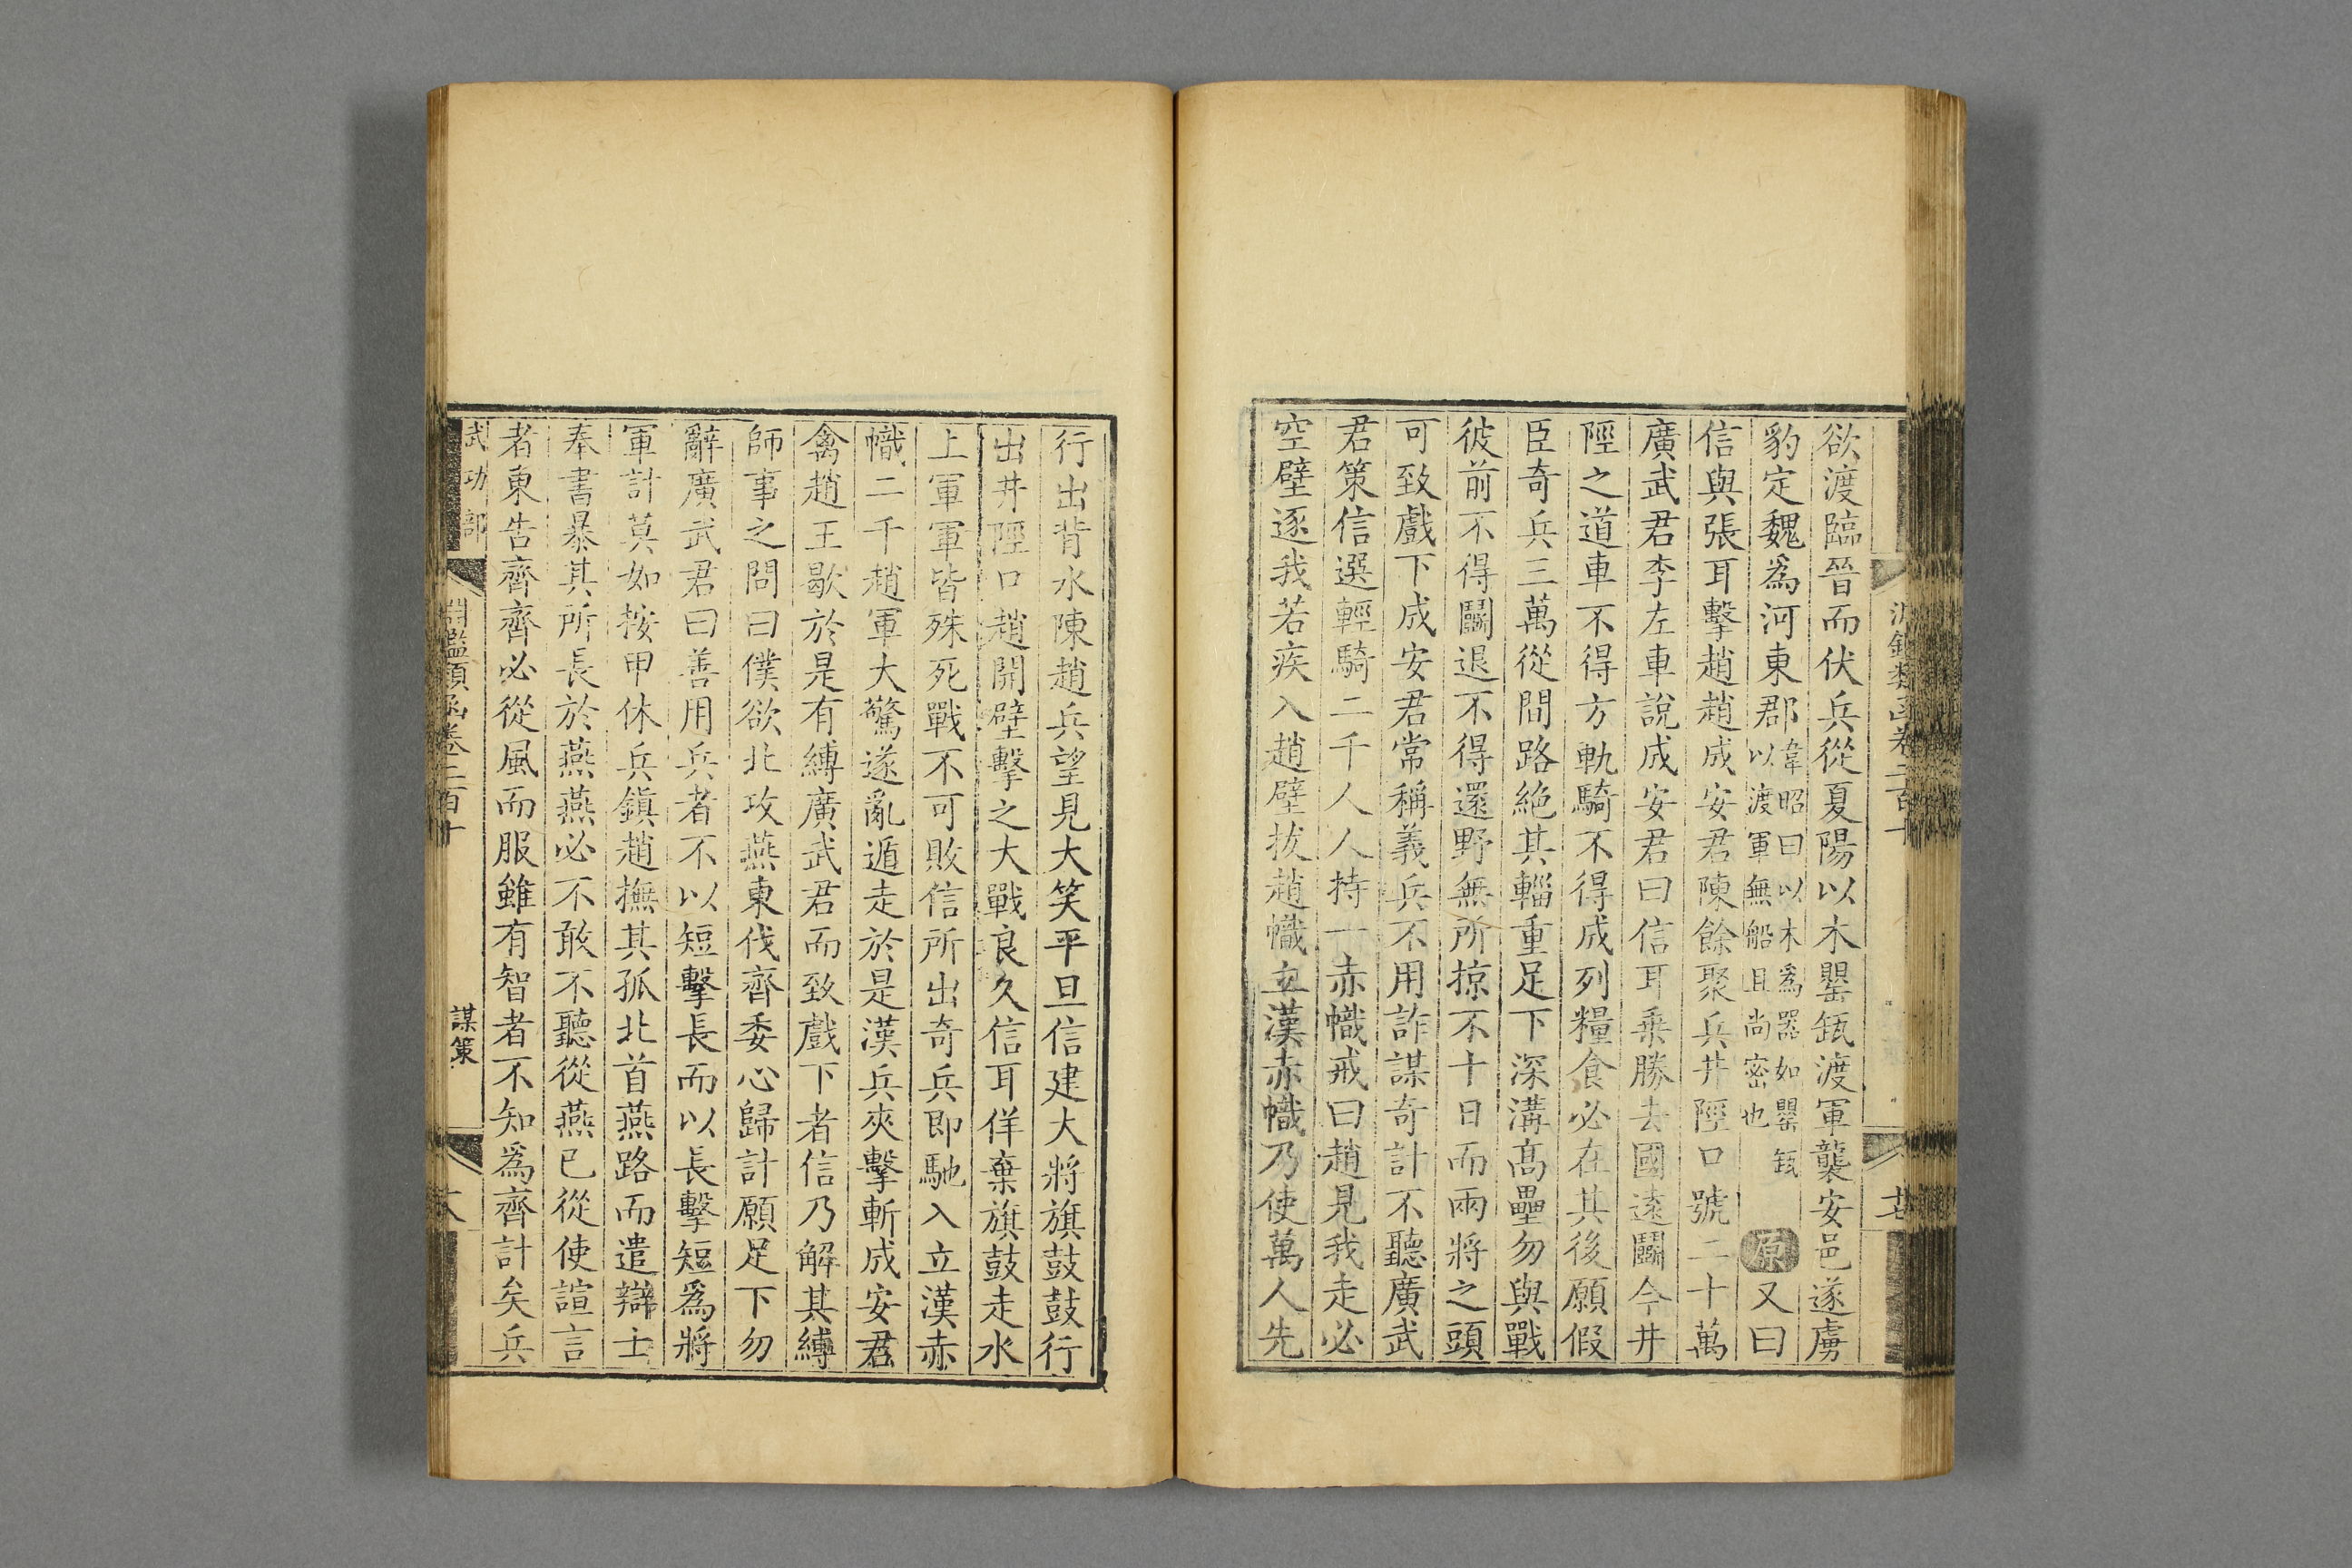 欲渡臨晉而伏兵從夏陽以木罌缻渡軍襲安邑遂虜
豹定魏爲河東郡韋昭曰以木爲器如罌缻以渡軍無船且尚密也原又曰
信與張耳擊趙趙成安君陳餘聚兵井陘口號二十萬
廣武君李左車說成安君曰信耳乗勝去國遠鬭今井
陘之道車不得方軌騎不得成列糧食必在其後願假
臣奇兵三萬從間路絶其輜重足下深溝髙壘勿與戰
彼前不得鬭退不得還野無所掠不十日而兩將之頭
可致戲下成安君常稱義兵不用詐謀奇計不聽廣武
君策信選輕騎二千人人持一赤幟戒曰趙見我走必
空壁逐我若疾入趙壁拔趙幟立漢赤幟乃使萬人先
行出背水陳趙兵望見大笑平旦信建大將旗鼓鼓行
出井陘口趙開壁擊之大戰良久信耳佯棄旗鼓走水
上軍軍皆殊死戰不可敗信所出奇兵即馳入立漢赤
幟二千趙軍大驚遂亂遁走於是漢兵夾擊斬成安君
禽趙王歇於是有縛廣武君而致戲下者信乃解其縛
師事之問曰僕欲北攻燕東伐齊委心歸計願足下勿
辭廣武君曰善用兵者不以短擊長而以長擊短爲將
軍計莫如按甲休兵鎭趙撫其孤北首燕路而遣辯士
奉書暴其所長於燕燕必不敢不聽從燕已從使諠言
者東告齊齊必從風而服雖有智者不知爲齊計矣兵
武功部 淵鑑類函卷二百十 謀策